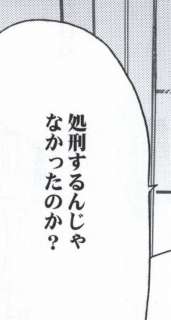 処刑するんじゃ
なかったのか？